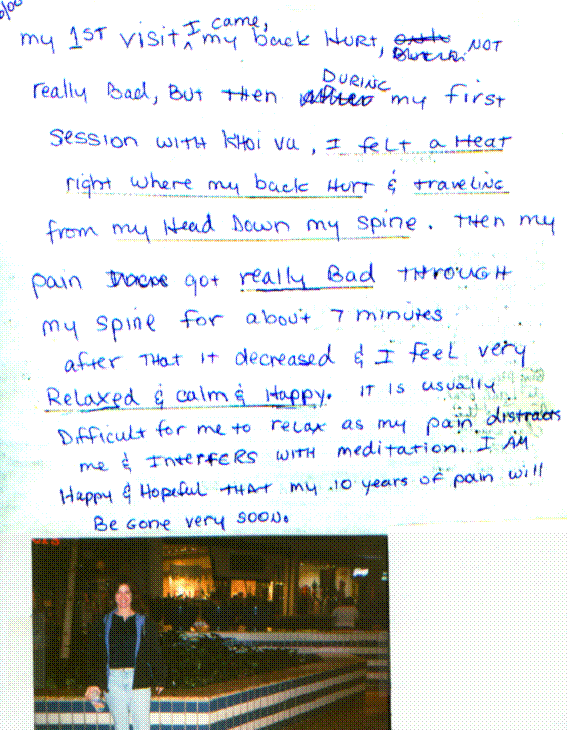 my 1ST visit I came, my back HURT, NOT
really Bad, But then DURING my first
Session with KHOi Vu, I felt a Heat
right where my back Hurt & traveling
from my Head Down my spine. THEN my
pain got really Bad THROUGH
my spine for about 7 minutes
after THAT it decreased & I feel very
Relaxed & calm & Happy. IT IS usually
Difficult for me to relax as my pain distracts
me & INTERFERS WITH meditation. I AM
Happy & Hopeful THAT my 10 years of pain will
Be Gone very SOON.